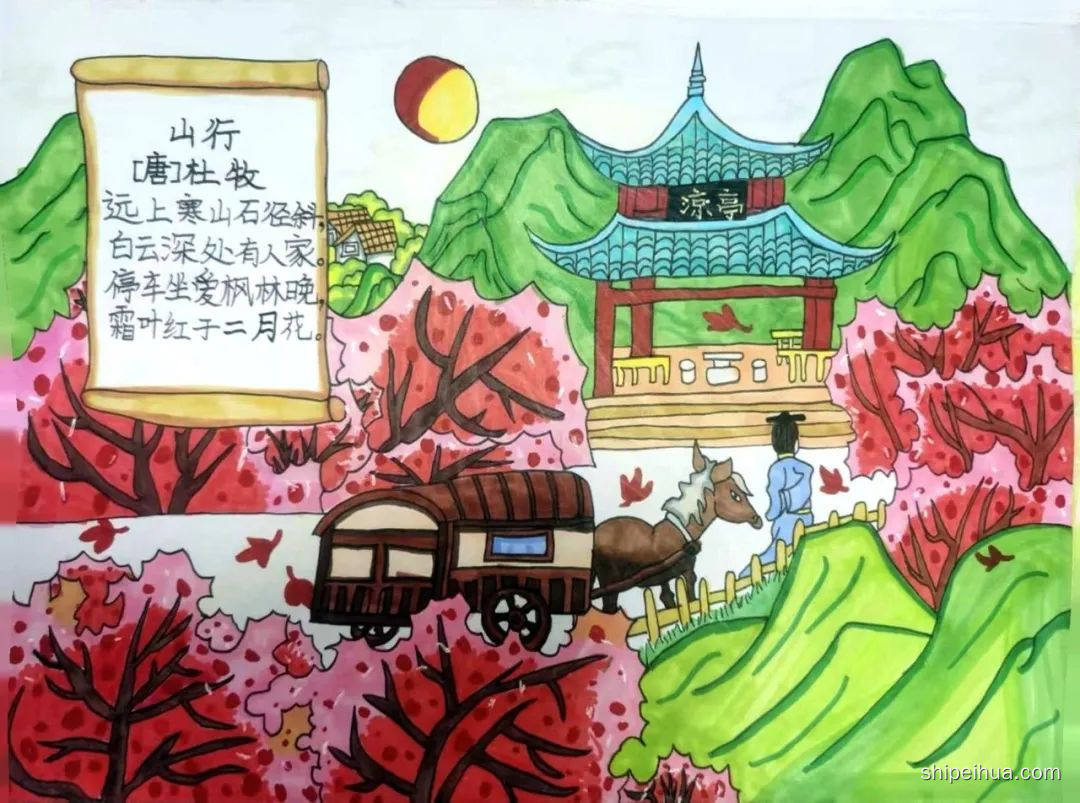 山行
[唐]杜牧
远上寒山石径斜,
白云深处有人家。
停车坐爱枫林晚,
霜叶红于二月花。
凉亭
shipeihua.com